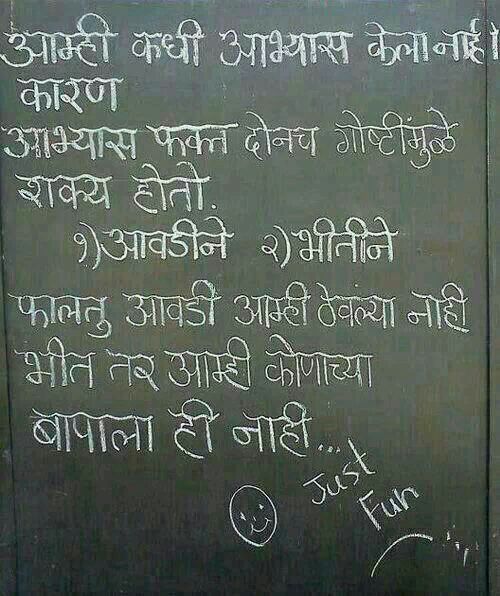 आम्ही कधी आभ्यास केला नाही।
कारण
आभ्यास फक्त दोनच गोष्टींमुळे
शक्य होतो.
१) आवडीने २) भीतीने
फालतु आवडी आम्ही ठेवल्या नाही
भीत तर आम्ही कोणाच्या
बापाला ही नाही...
Just
Fun